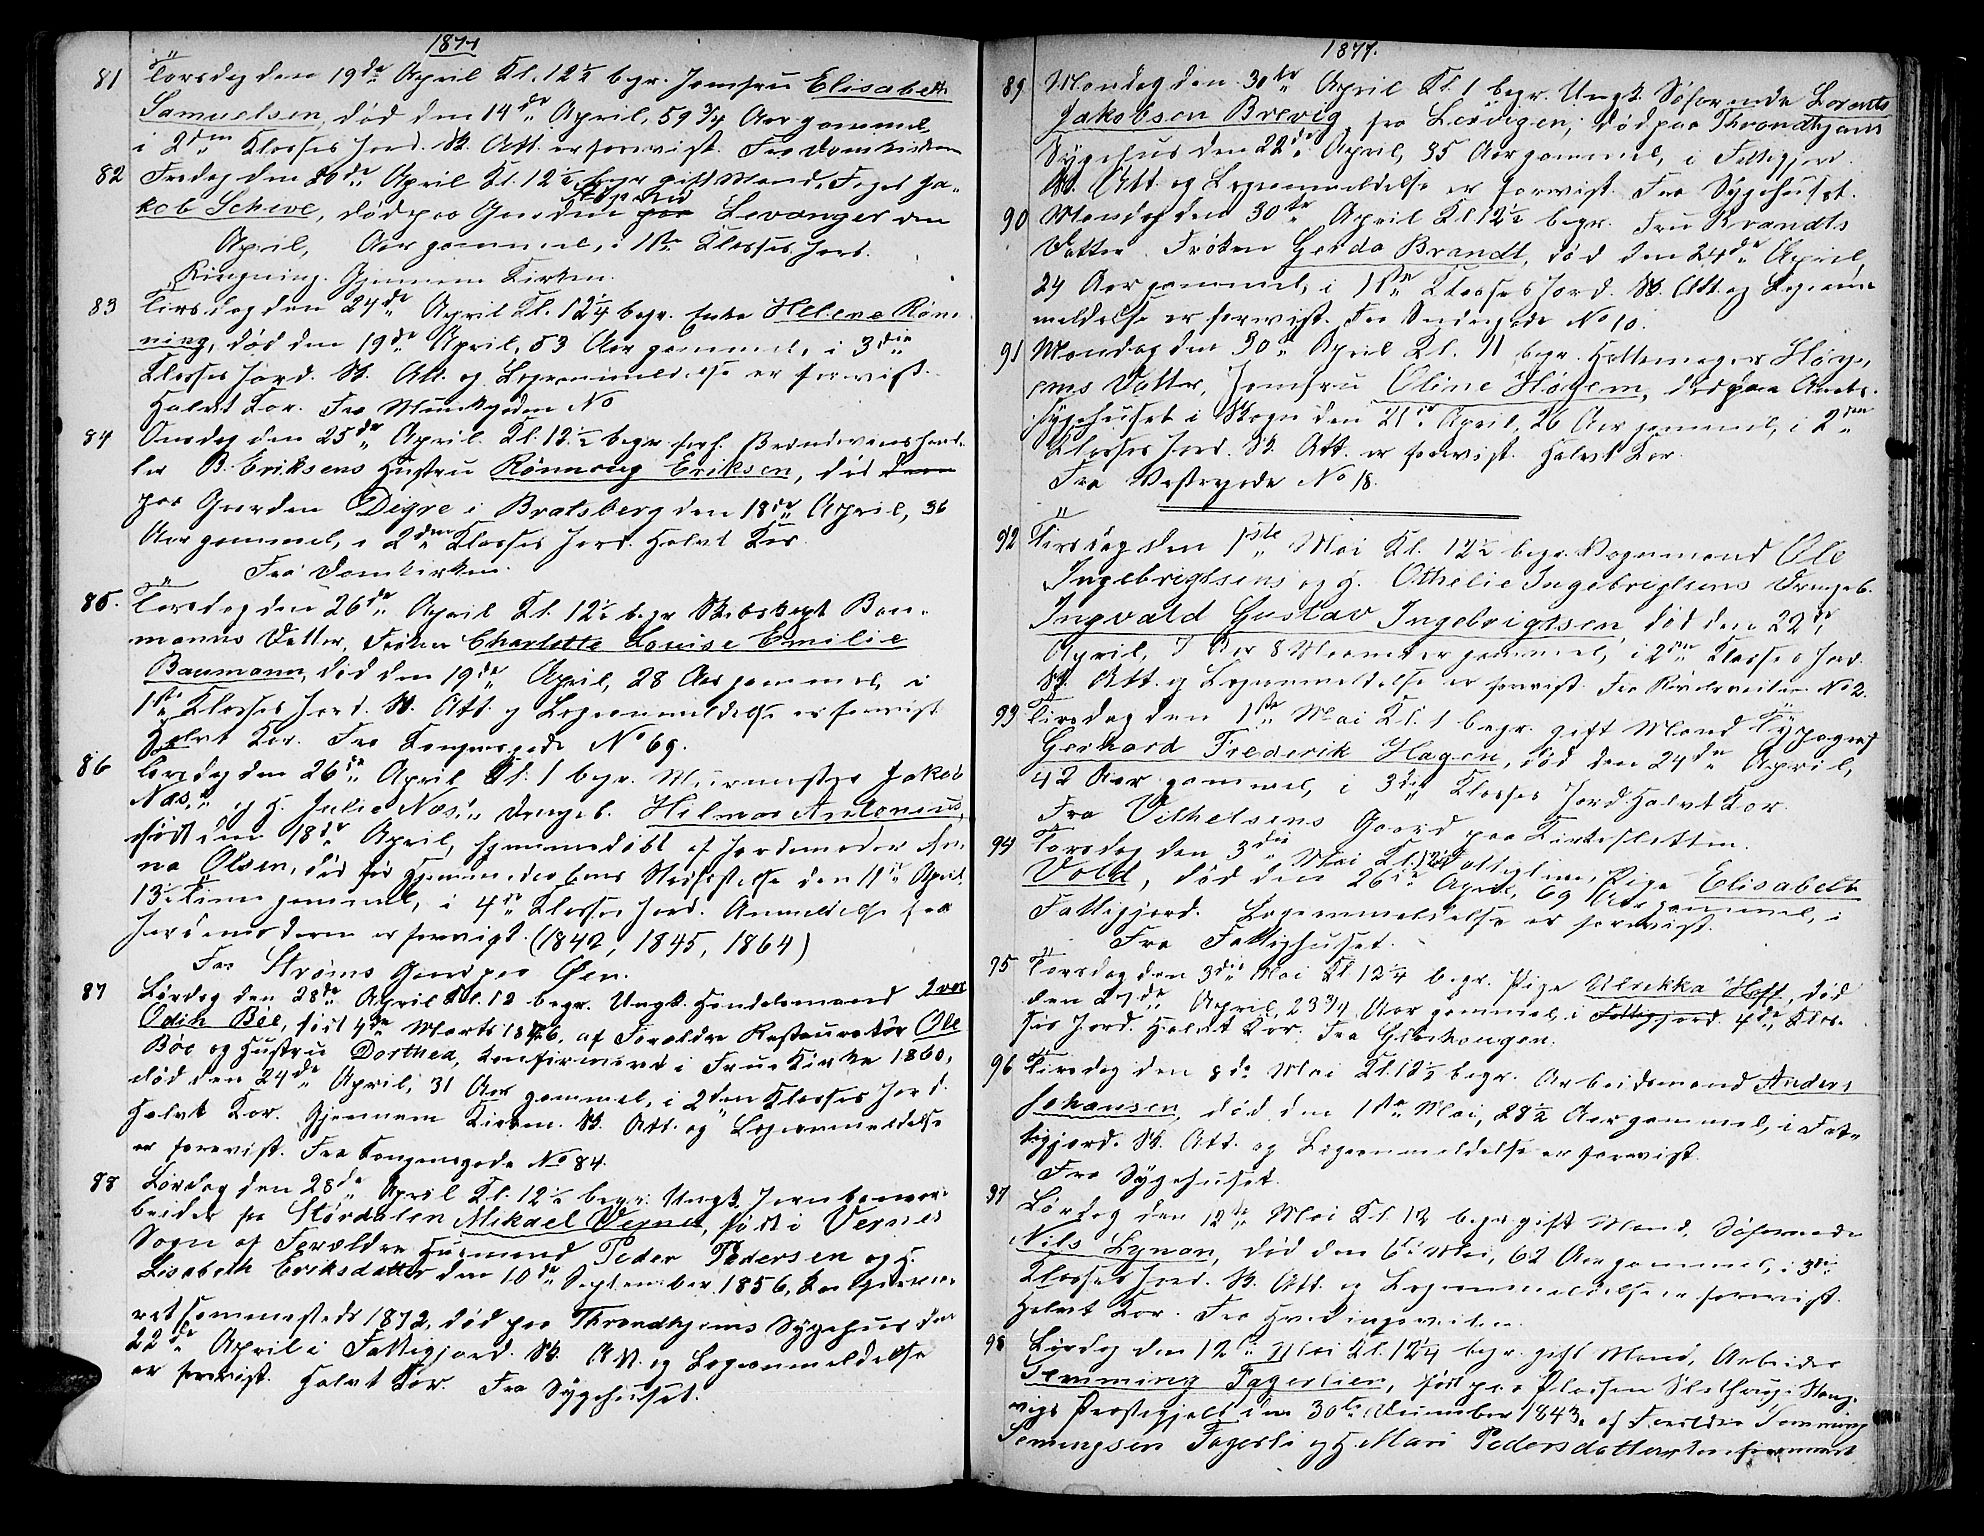 1877
81 Torsdag den 19de April Kl. 12½ begr. Jomfru Elisabeth
Samuelsen, død den 14de April, 59 3/4 Aar gammel,
i 2den Klasses Jord. Sk. Att. er forevist. Fra Domkirken
82 Fredag den 20de April Kl. 12½ begr. gift Mand, Foged Ja-
kob Scheve, død paa Gaarden Levanger den
April, Aar gammel, i 1ste Klasses Jord.
Ringning. Gjennem Kirken.
83 Tirsdag den 24de April Kl. 12¼ begr. Enke Helene Røn-
ning, død den 19de April, 83 Aar gammel, i 3die
Klasses Jord. Sk. Att. og Lægeanmeldelse er forevist.
Halvt Kor. Fra Munkegaden No
84 Onsdag den 25de April Kl. 12½ begr. forh. Brændevinshand-
ler B. Eriksens Hustru Rønnaug Eriksen, død
paa Gaarden Digre i Bratsberg den 18de April, 36
Aar gammel, i 2den Klasses Jord. Halvt Kor.
Fra Domkirken.
85. Torsdag den 26de April Kl. 12½ begr. Skibskapt. Bau-
manns Datter, Frøken Charlotte Louise Emilie
Baumann, død den 19de April, 28 Aar gammel, i
1ste Klasses Jord. Sk. Att. og Lægeanmeldelse er forevist
Halvt Kor. Fra Kongensgade No 69.
86 Torsdag den 26de April Kl. 1 begr. Murmester Jakob
Næs' og H. Julie Næs' Drengeb. Hilmar Antonius,
født den 18de April, hjemmedøbt af Jordemoder
Olsen, død før Hjemmedaabens Stadfæstelse den 19de April,
13 Timer gammel, i 4de Klasses Jord. Anmeldelse fra
Jordemoderen er forevist. (1842, 1845, 1864)
Fra Strøms Gaard paa Øen.
87 Lørdag den 28de April Kl. 12 begr. Ungk. Handelsmand Ivar
Odin Böe, født 4de Marts 1846, af Forældre Restauratør Ole
Böe og Hustru Dorthea, konfirmeret i Frue Kirke 1860,
død den 24de April, 31 Aar gammel, i 2den Klasses Jord.
Halvt Kor. Gjennem Kirken. Sk. Att. og Lægeanmeldelse
er forevist. Fra Kongensgade No 84.
88 Lørdag den 28de April Kl. 12½ begr. Ungk. Jernbanear-
beider fra Størdalen Mikael Vernes, født i Vernes
Sogn af Forældre Husmand Peder Pedersen og H.
Lisabeth Eriksdatter den 10de September 1856, konfirme-
ret sammesteds 1872, død paa Throndhjems Sygehus den
22de April i Fattigjord. Sk. Att. og Lægeanmeldelse
er forevist. Halvt Kor. Fra Sygehuset.
1877.
89 Mandag den 30te April Kl. 1 begr. Ungk. Søfarende Lorents
Jakobsen Brevig fra Lervigen, død paa Throndhjems
Sygehus den 22de April, 35 Aar gammel, i Fattigjord.
Sk. Att. og Lægeanmeldelse er forevist. Fra Sygehuset.
90 Mandag den 30te April Kl 12½ begr. Fru Brandts
Datter Frøken Gerda Brandt, død den 24de April,
24 Aar gammel, i 1ste Klasses Jord. Sk. Att. og Lægean-
meldelse er forevist. Fra Søndregade No 10.
91 Mandag den 30te April Kl. 11 begr. Hattemager Høy-
ems Datter, Jomfru Oline Høyem, død paa Amts-
sygehuset i Skogn den 21de April, 26 Aar gammel, i 2den
Klasses Jord. Sk. Att. er forevist. Halvt Kor.
Fra Vestregade No 18.
92 Tirsdag den 1ste Mai Kl. 12½ begr. Vognmand Ole
Ingebrigtsens og H. Othelie Ingebrigtsens Drengeb.
Ingvald Gustav Ingebrigtsen, død den 22de
April, 7 Aar 8 Maaneder gammel, i 2den Klasses Jord.
Sk. Att. og Lægeanmeldelse er forevist. Fra No 2.
93 Tirsdag den 1ste Mai Kl. 1 begr. gift Mand Typograf
Gerhard Frederik Hagen, død den 24de April,
42 Aar gammel, i 3die Klasses Jord. Halvt Kor.
Fra Vilhelsens Gaard paa Kirkesletten.
94 Torsdag den 3die Mai Kl. 12 Fattiglem, Pige Elisabeth
Vold, død den 26de April, 69 Aar gammel, i
Fattigjord. Lægeanmeldelse er forevist.
Fra Fattighuset.
95 Torsdag den 3die Mai Kl. 12¼ begr. Pige Ulrikka Hoff, død
den 27de April, 23 3/4 Aar gammel, i Fattigjord. 4de Klas-
ses Jord. Halvt Kor. Fra Gløshaugen.
96 Tirsdag den 8de Mai Kl. 12½ begr. Arbeidsmand Anders
Johansen, død den 1ste Mai, 28½ Aar gammel, i Fat-
tigjord. Sk. Att. og Lægeanmeldelse er forevist.
Fra Sygehuset.
97 Lørdag den 12te Mai Kl. 12 begr. gift Mand, Søfarende
Nils Lynan, død den 6te Mai, 62 Aar gammel, i 3die
Klasses Jord. Sk. Att. og Lægeanmeldelse er forevist.
Halvt Kor. Fra Hvedingsveiten.
98 Lørdag den 12te Mai Kl. 12¼ begr. gift Mand, Arbeider
Temming Fagerlien, født paa Pladsen Slethaug i Stang-
vigs Præstegjeld den 30te December 1843, af Forældre Temming
Temingsen Fagerli og H. Mari Pedersdatter, konfirmeret